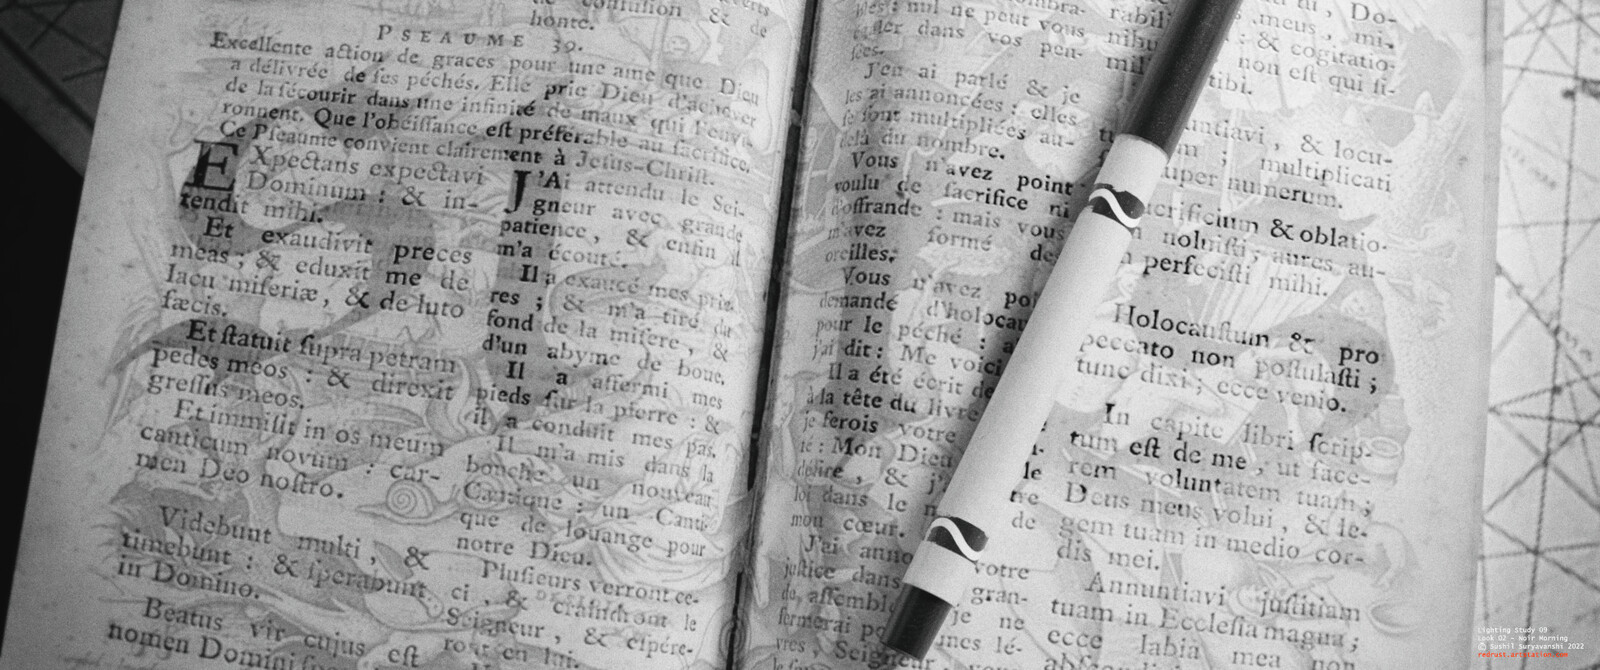 de confuſion &
honte. de
PSEAUME 39.
Excellente action de graces pour une ame que Dieu
a délivrée de ſes péchés. Elle prie Dieu d'achever
de la ſécourir dans une infinité de maux qui l'envi-
ronnent. Que l'obéiſſance eſt préferable au ſacrifice.
Ce Pſeaume convient clairement à Jeſus-Chriſt.
EXpectans expectavi
Dominum : & in-
tendit mihi.
Et exaudivit preces
meas ; & eduxit me de
lacu miſeriæ, & de luto
fæcis.
Et ſtatuit ſupra petram
pedes meos : & direxit
greſſus meos.
Et immiſit in os meum
canticum novum : car-
men Deo noſtro.
Videbunt multi, &
timebunt : & ſperabunt
in Domino.
Beatus vir cujus eſt
nomen Domini
J'Ai attendu le Sei-
gneur avec grande
patience, & enfin il
m'a écouté.
Il a exaucé mes prie-
res ; & m'a tiré du
fond de la miſere, &
d'un abyme de boue.
Il a affermi mes
pieds ſur la pierre : &
il a conduit mes pas.
Il m'a mis dans la
bouche un nouveau
Cantique : un Canti-
que de louange pour
notre Dieu.
Pluſieurs verront ce-
ci, & craindront le
Seigneur, & eſpére-
ront en lui.
nul ne peut vous
dans vos pen-
ſées.
J'en ai parlé & je
les ai annoncées : elles
ſe ſont multipliées au-
delà du nombre.
Vous n'avez point
voulu de ſacrifice ni
d'offrande : mais vous
m'avez formé des
oreilles.
Vous n'avez
demandé d'holocau
pour le péché :
j'ai dit : Me voici
Il a été écrit de
à la tête du livre
je ferois votre
té : Mon Dieu
déſire, & j'
loi dans le
mon cœur. de
J'ai anno
juſtice dans votre
de, aſſemblé gran-
fermerai je ne
Seigneur
rabil
meus, mi-
: & cogitatio-
non eſt qui ſi-
tibi.
untiavi, & locu-
; multiplicati
ſuper numerum.
acrificium & oblatio-
noluiſti ; aures au-
perfeciſti mihi.
Holocauſtum & pro
peccato non poſtulaſti ;
tunc dixi ; ecce venio.
In capite libri ſcrip-
tum eſt de me, ut face-
rem voluntatem tuam ;
Deus meus volui, & le-
gem tuam in medio cor-
dis mei.
Annuntiavi juſtitiam
tuam in Eccleſia magna ;
ecce labia mea non
Lighting Study 09
Look 02 - Noir Morning
© Sushil Suryavanshi 2022
redrust.artstation.com